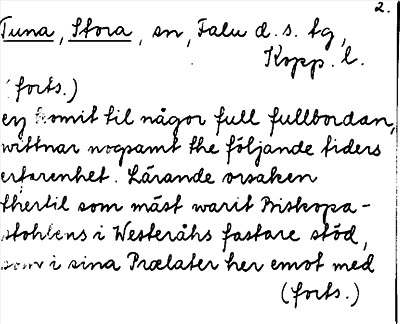 2.
Tuna, Stora, sn, Falu d. s. tg,
Kopp. l.
(forts.)
ey komit til någor full fullbordan,
wittnar nogsamt the följande tiders
erfarenhet. Lärande orsaken
thertil som mäst warit Biskopa-
stohlens i Westeråhs fastare stöd,
som i sina Prælater her emot med
(forts.)